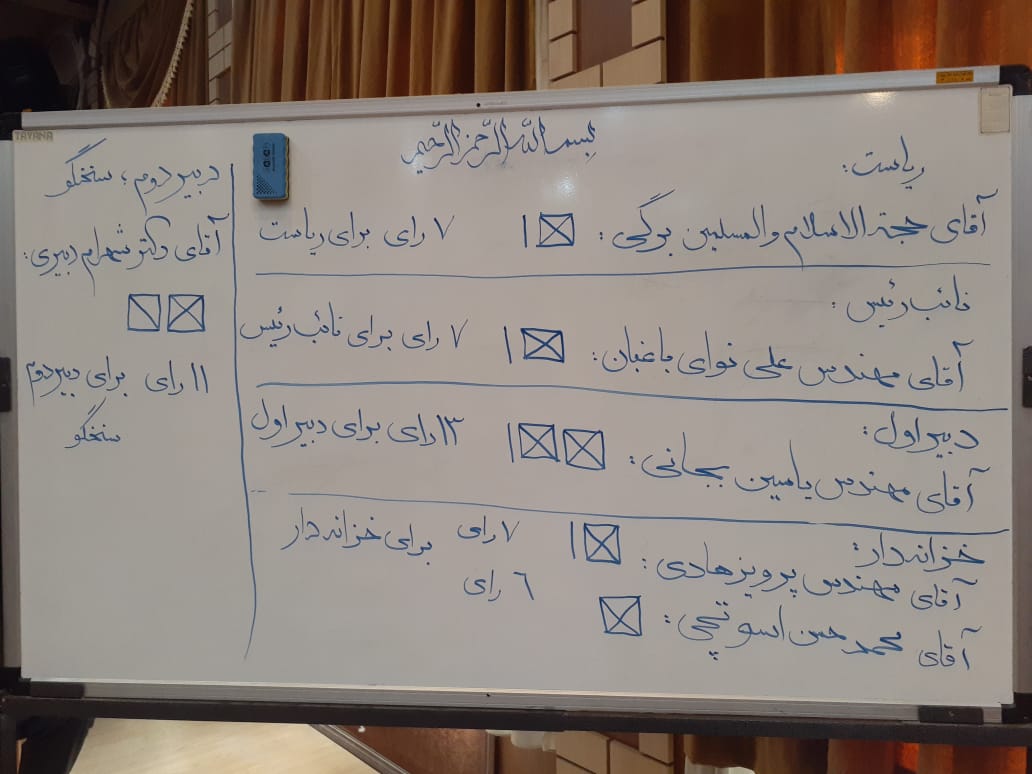 بسم الله الرحمن الرحیم
ریاست:
آقای حجة الاسلام والمسلمین برگی: ۷ رای برای ریاست
نائب رئیس:
آقای مهندس علی نوای باغبان: ۷ رای برای نائب رئیس
دبیر اول:
آقای مهندس یاسین بجانی: ۱۳ رای برای دبیر اول
خزانه دار:
آقای مهندس پرویز هادی: ۷ رای برای خزانه دار
آقای محمد حسن اسوتچی: ۶ رای
دبیر دوم؛ سخنگو
آقای دکتر شهرام دبیری:
۱۱ رای برای دبیر دوم
سخنگو
TAYANA